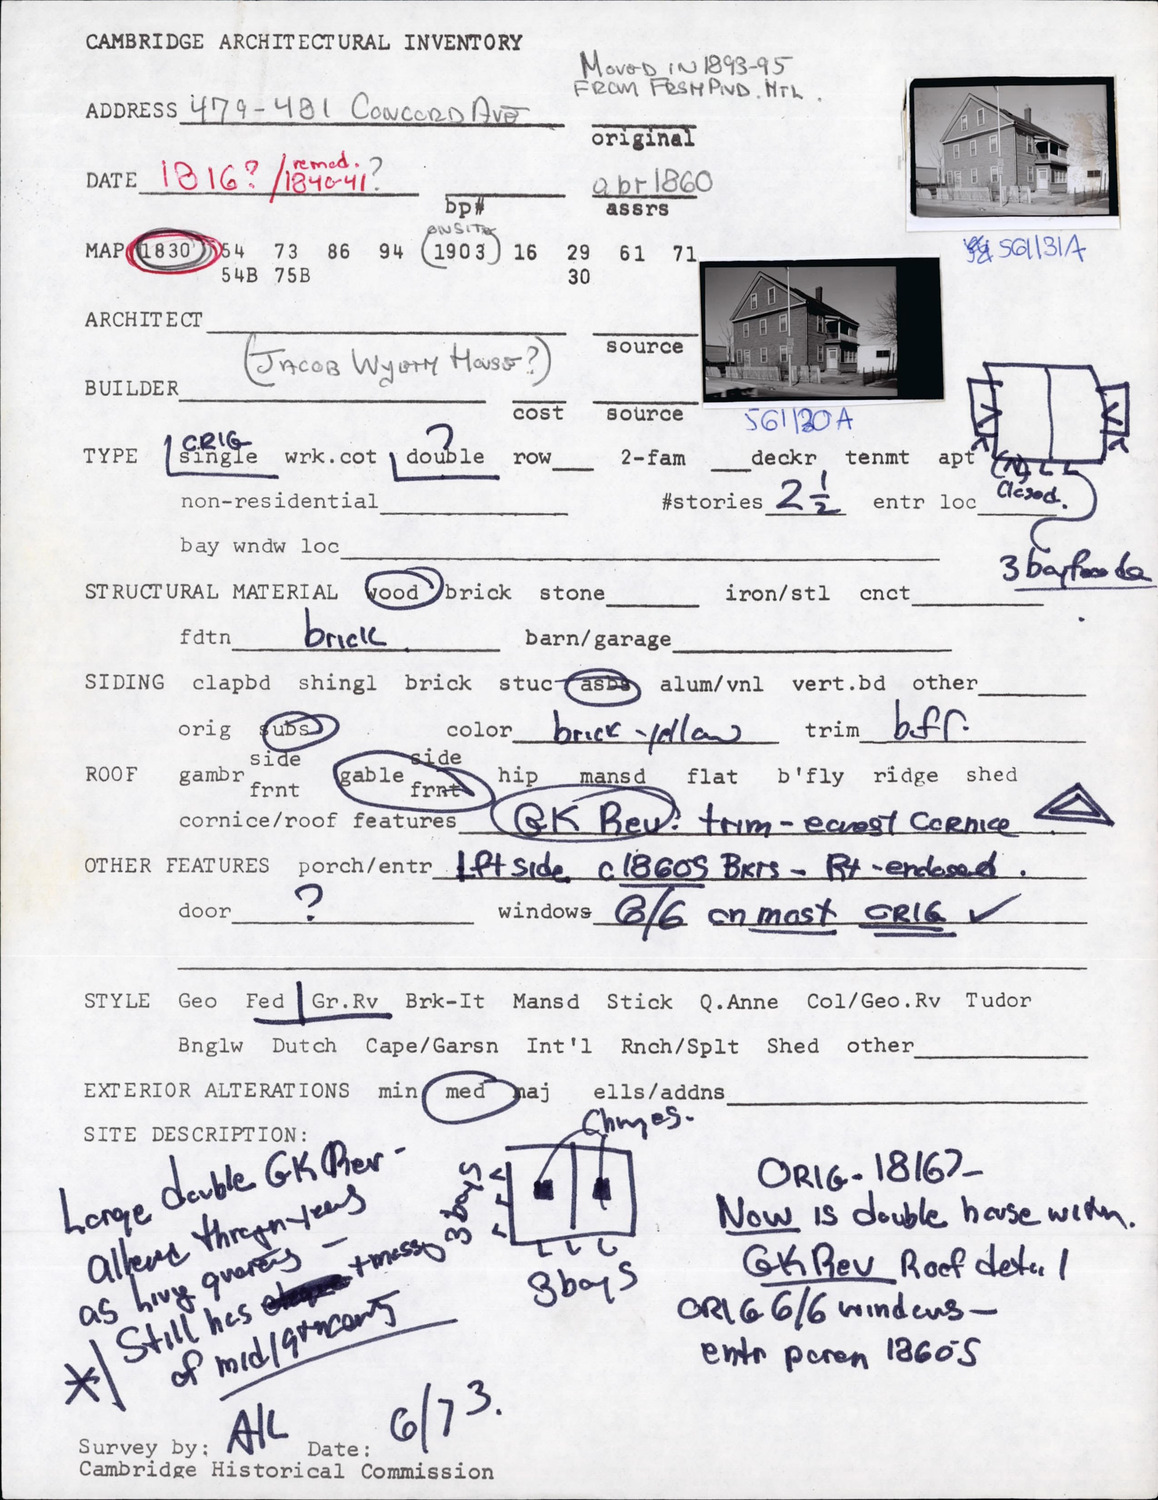 CAMBRIDGE ARCHITECTURAL INVENTORY
MOVED IN 1893-95
FROM FRSH PND. HTL.
ADDRESS 479-481 CONCORD AVE
original
DATE 1816? / remod. 1840-41?
abr 1860
bp# assrs
ONSITE
MAP 1830 54 73 86 94 (1903) 16 29 61 71
54B 75B 30
561/31A
ARCHITECT
source
(JACOB WYETH HOUSE?)
BUILDER
cost source
561/30A
ORIG ?
TYPE single wrk.cot double row 2-fam deckr tenmt apt
(N)
Closed.
non-residential #stories 2 1/2 entr loc
bay wndw loc
3 bay facade
STRUCTURAL MATERIAL wood brick stone iron/stl cnct
fdtn brick barn/garage
SIDING clapbd shingl brick stuc asbs alum/vnl vert.bd other
orig subs color brick-yellow trim buff.
side side
ROOF gambr gable hip mansd flat b'fly ridge shed
frnt frnt
cornice/roof features GK Rev: trim - Cornice
OTHER FEATURES porch/entr Lft side c1860S Bkts - Rt - enclosed.
door ? windows 6/6 on most ORIG ✓
STYLE Geo Fed Gr.Rv Brk-It Mansd Stick Q.Anne Col/Geo.Rv Tudor
Bnglw Dutch Cape/Garsn Int'l Rnch/Splt Shed other
EXTERIOR ALTERATIONS min med maj ells/addns
SITE DESCRIPTION:
Chmyes.
Large double GK Rev -
altered through years
as livng quarters -
* Still has + massg
of mid/19th century
3 bays
3 bays
ORIG - 1816?-
Now is double house with
GK Rev Roof detail
ORIG 6/6 windows -
entr porch 1860S
Survey by: A/L Date: 6/73.
Cambridge Historical Commission